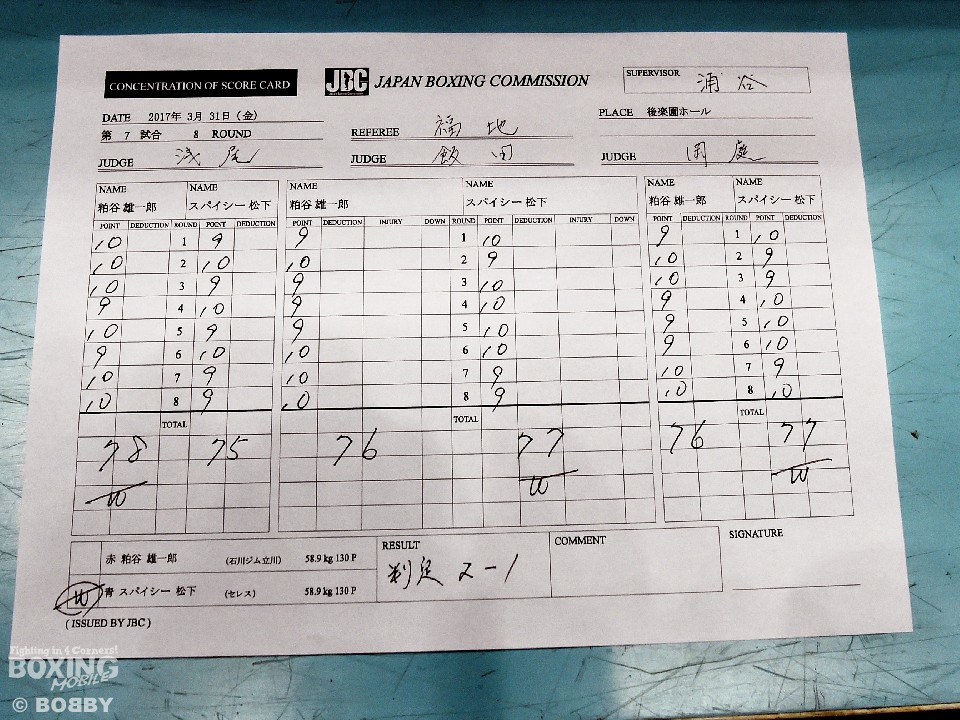 CONCENTRATION OF SCORE CARD
JBC JAPAN BOXING COMMISSION
SUPERVISOR 浦谷
DATE 2017年 3月 31日（金）
PLACE 後楽園ホール
第 7 試合 8 ROUND
REFEREE 福地
JUDGE 浅尾 JUDGE 飯田 JUDGE
NAME NAME NAME NAME NAME NAME
粕谷 雄一郎 スパイシー 松下 粕谷 雄一郎 スパイシー 松下 粕谷 雄一郎 スパイシー 松下
POINT DEDUCTION ROUND POINT DEDUCTION POINT DEDUCTION INJURY DOWN ROUND POINT DEDUCTION INJURY DOWN POINT DEDUCTION ROUND POINT DEDUCTION
10 1 9 9 1 10 9 1 10
10 2 10 10 2 9 10 2 9
10 3 9 9 3 10 10 3 9
9 4 10 9 4 10 9 4 10
10 5 9 9 5 10 9 5 10
9 6 10 10 6 10 9 6 10
10 7 9 10 7 9 10 7 9
10 8 9 10 8 9 10 8 10
TOTAL TOTAL TOTAL
78 75 76 77 76 77
W W W
赤 粕谷 雄一郎 （石川ジム立川） 58.9 kg 130 P
W 青 スパイシー 松下 （セレス） 58.9 kg 130 P
RESULT
判定 2-1
COMMENT
SIGNATURE
( ISSUED BY JBC )
Fighting in 4 Corners!
BOXING
MOBILE
© BOBBY